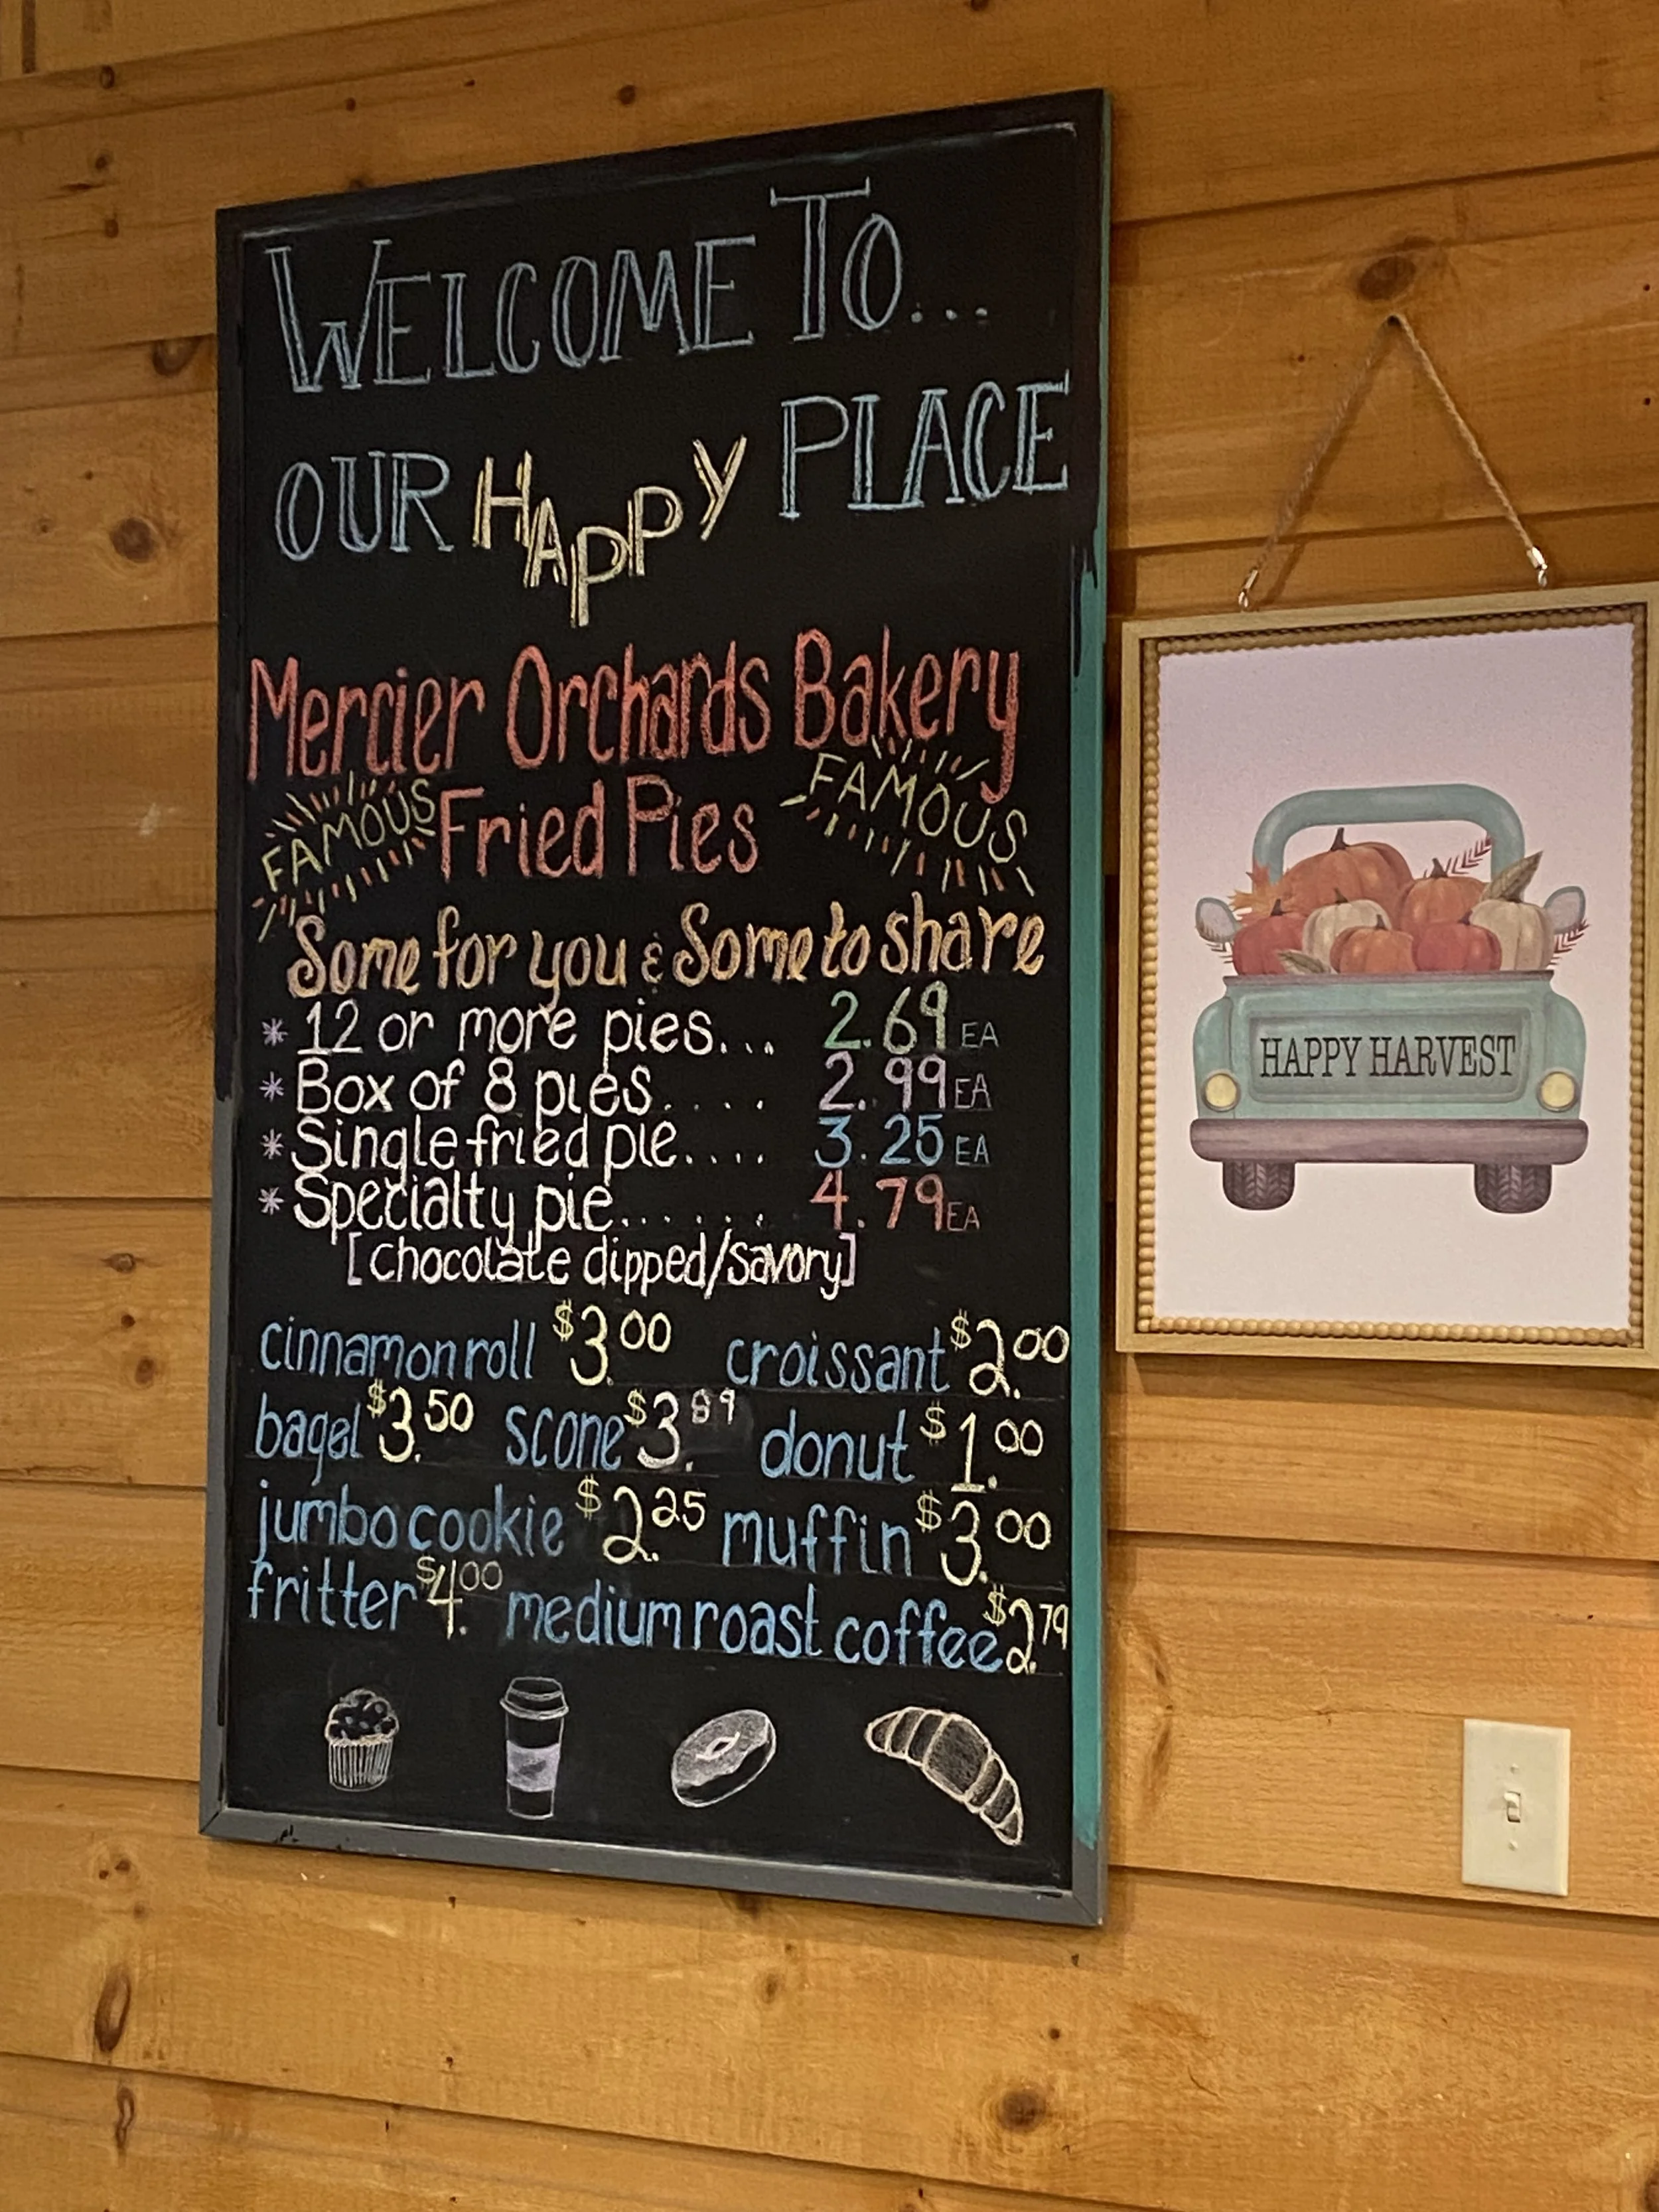 WELCOME TO...
OUR HAPPY PLACE
Mercier Orchards Bakery
FAMOUS Fried Pies FAMOUS
Some for you & Some to share
* 12 or more pies... 2.69 EA
* Box of 8 pies.... 2.99 EA
* Single fried pie.... 3.25 EA
* Specialty pie...... 4.79 EA
[chocolate dipped/savory]
cinnamon roll $3.00 croissant $2.00
bagel $3.50 scone $3.89 donut $1.00
jumbo cookie $2.25 muffin $3.00
fritter $4.00 medium roast coffee $2.79
HAPPY HARVEST